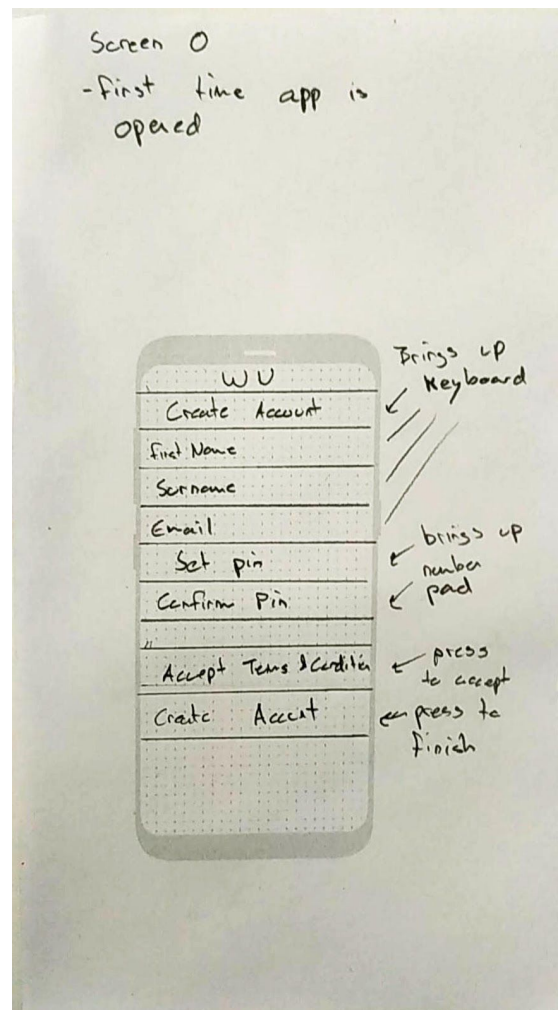 Screen 0
- First time app is
opened
WU
Create Account
First Name
Surname
Email
Set pin
Confirm Pin
"
Accept Terms & Condition
Create Account
Brings up
Keyboard
brings up
number
pad
press
to accept
press to
finish